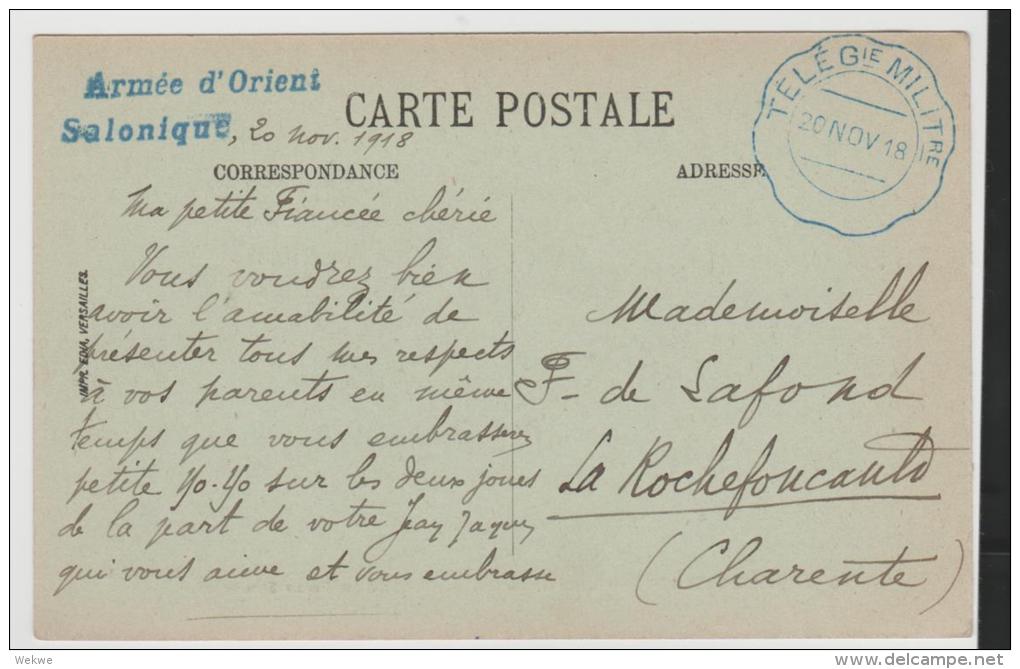 Armée d'Orient
Salonique, 20 nov. 1918
CARTE POSTALE
TÉLÉGIE MILITRE
20 NOV 18
CORRESPONDANCE
ADRESSE
Ma petite Fiancée chérie
Vous voudrez bien
avoir l'amabilité de
présenter tous mes respects
à vos parents en même
temps que vous embrasserez
petite Yo-Yo sur les deux joues
de la part de votre Jean Jaques
qui vous aime et vous embrasse
IMPR. EDIA, VERSAILLES.
Mademoiselle
F- de Lafond
La Rochefoucauld
(Charente)
Wekwe
delcampe.net